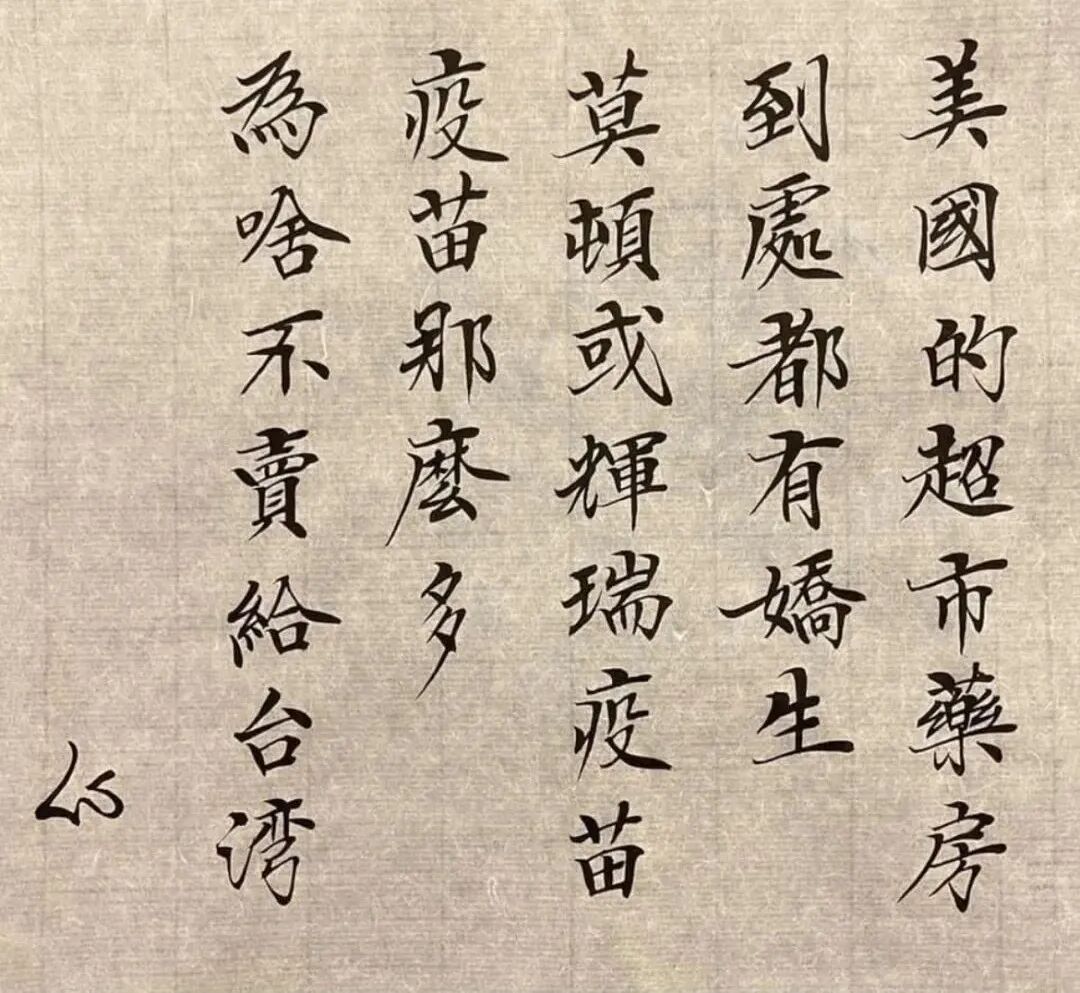 美國的超市藥房
到處都有嬌生
莫頓或輝瑞疫苗
疫苗那麼多
為啥不賣給台湾